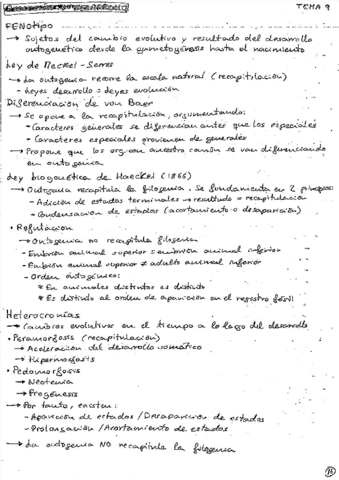 TEMA 9
FENOTIPO
→ Sujetos del cambio evolutivo y resultado del desarrollo
ontogenético desde la gametogénesis hasta el nacimiento
Ley de Meckel-Serres
→ La ontogenia recorre la escala natural (recapitulación)
→ Leyes desarrollo = Leyes evolución
Diferenciación de von Baer
→ Se opone a la recapitulación, argumentando:
- Caracteres generales se diferencian antes que los especiales
- Caracteres especiales provienen de generales
→ Propone que los organ ancestro común se van diferenciando
en ontogenia
Ley biogenética de Haeckel (1866)
→ Ontogenia recapitula la filogenia. Se fundamenta en 2 principios:
- Adición de estados terminales → resultado = recapitulación
- Condensación de estados (acortamiento o desaparición)
• Refutación
→ Ontogenia no recapitula filogenia
- Embrión animal superior = embrión animal inferior
- Embrión animal superior ≠ adulto animal inferior
- Orden ontogénico:
* En animales distintos es distinto
* Es distinto al orden de aparición en el registro fósil
Heterocronías
→ Cambios evolutivos en el tiempo a lo largo del desarrollo
• Peramorfosis (recapitulación)
→ Aceleración del desarrollo somático
→ Hipermorfosis
• Pedomorfosis
→ Neotenia
→ Progénesis
→ Por tanto, existen:
- Aparición de estados / Desaparición de estados
- Prolongación / Acortamiento de estados
→ La ontogenia NO recapitula la filogenia